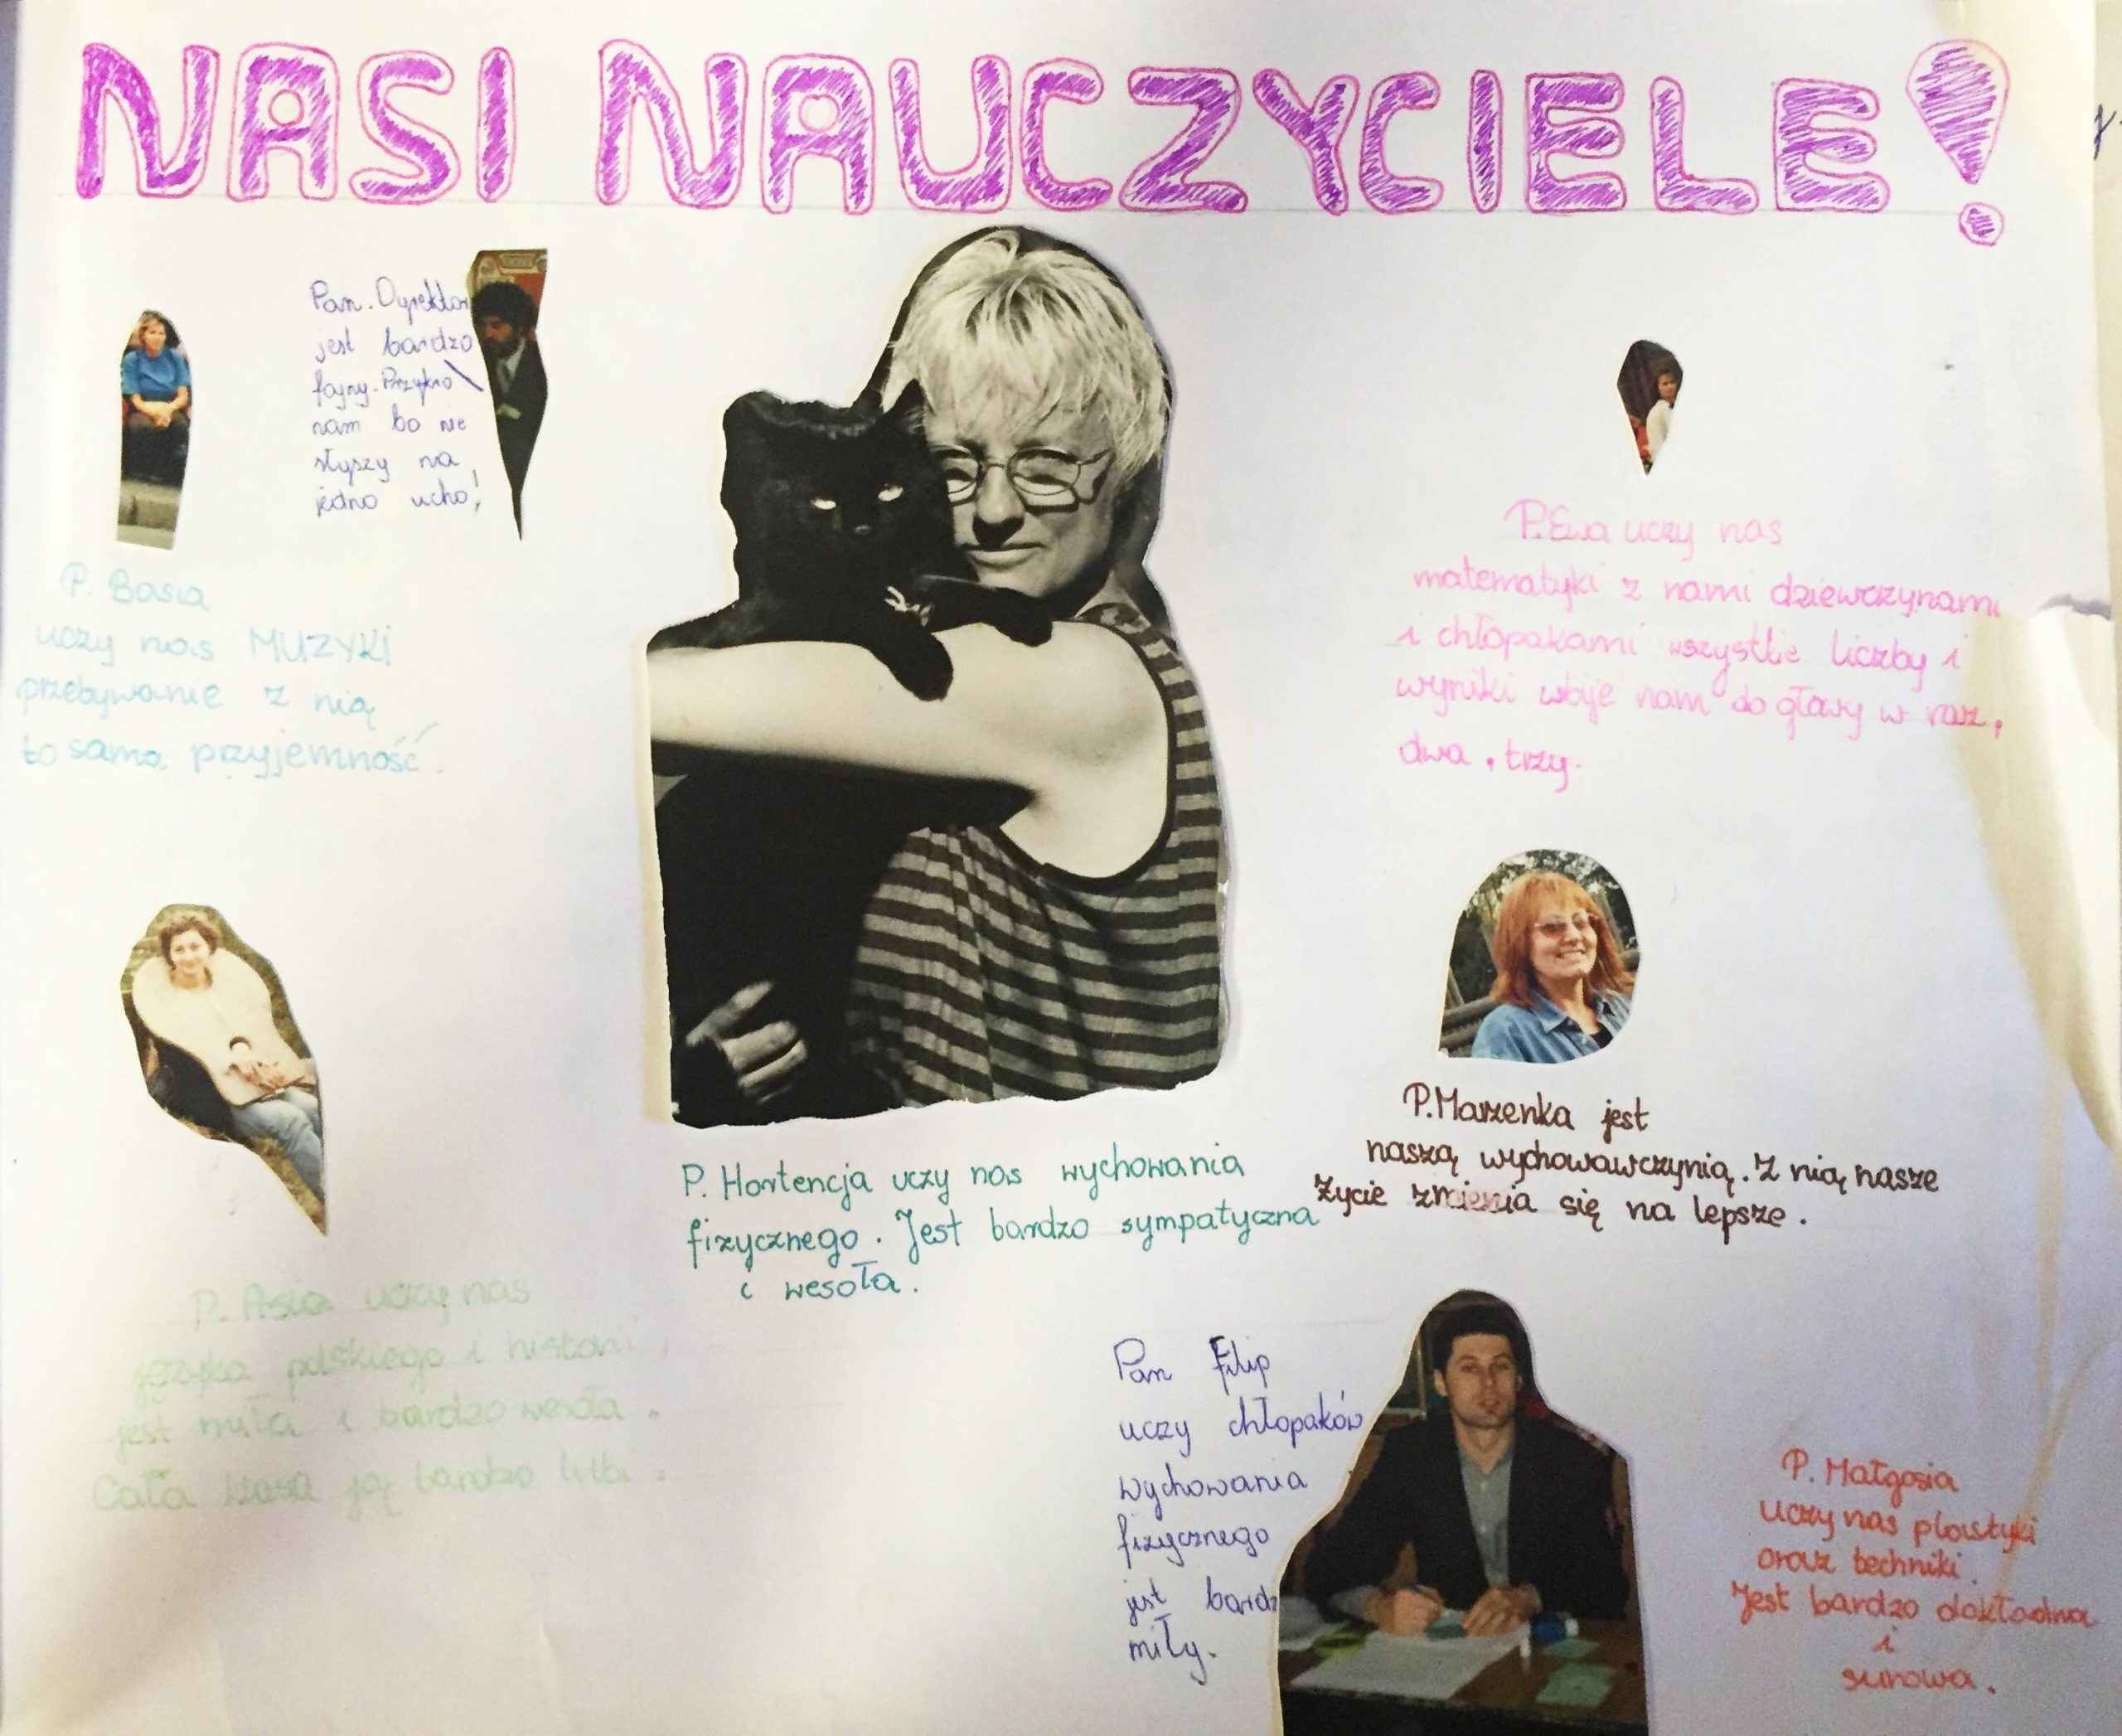 NASI NAUCZYCIELE!
Pan. Dyrektor
jest bardzo
fajny. Przykro
nam bo nie
słyszy na
jedno ucho!
P. Basia
uczy nas MUZYKI
przebywanie z nią
to sama przyjemność.
P. Ewa uczy nas
matematyki z nami dziewczynami
i chłopakami wszystkie liczby i
wyniki wbije nam do głowy w raz,
dwa, trzy.
P. Hortencja uczy nas wychowania
fizycznego. Jest bardzo sympatyczna
i wesoła.
P. Marzenka jest
naszą wychowawczynią. Z nią nasze
życie zmienia się na lepsze.
P. Asia uczy nas
języka polskiego i histori
jest miła i bardzo wesoła.
Cała klasa ją bardzo lubi.
Pan Filip
uczy chłopaków
wychowania
fizycznego
jest bardz
miły.
P. Małgosia
uczy nas plastyki
oraz techniki.
Jest bardzo dokładna
i
surowa.